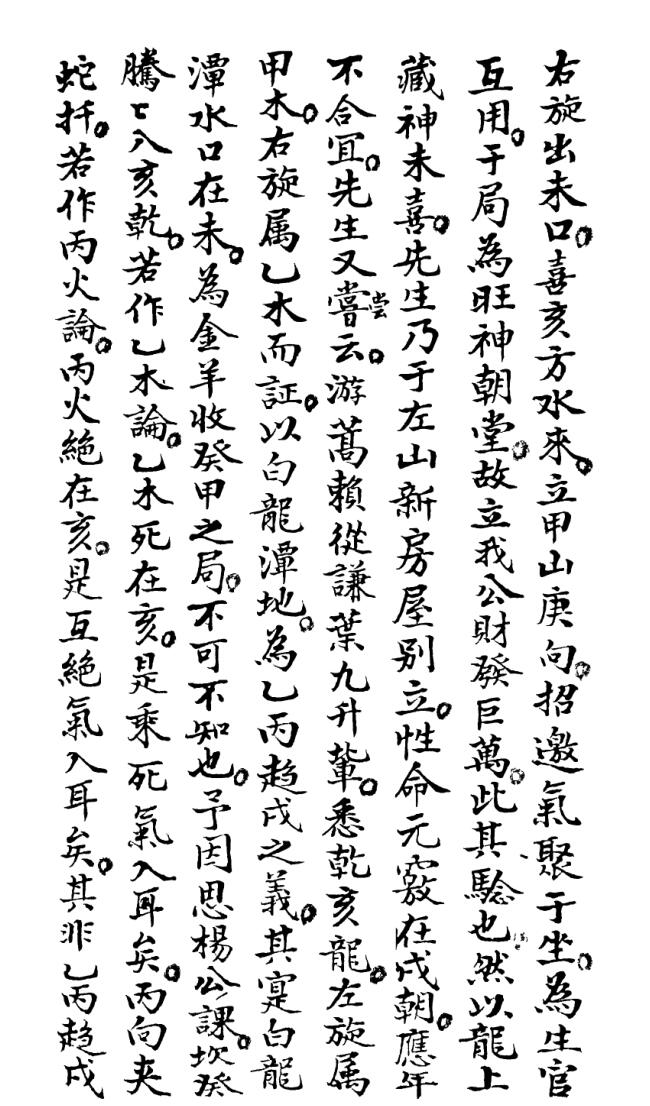 右旋出未口。喜亥方水來。立甲山庚向。招邀氣聚于坐。為生官
互用。于局為旺神朝堂。故立我公財發巨萬。此其驗也。然以龍上
藏神未喜。先生乃于左山新房屋別立。性命元竅在戌朝。應年
不合宜。先生又嘗云。游蒿賴從謙葉九升輩。悉乾亥龍。左旋属
甲木。右旋属乙木而証。以白龍潭地。為乙丙趋戌之義。其寔白龍
潭水口在未。為金羊收癸甲之局。不可不知也。予因思楊公課。坎癸
騰〻入亥乾。若作乙木論。乙木死在亥。是乘死氣入耳矣。丙向夹
蛇扦。若作丙火論。丙火絕在亥。是互絕氣入耳矣。其非乙丙趋戌